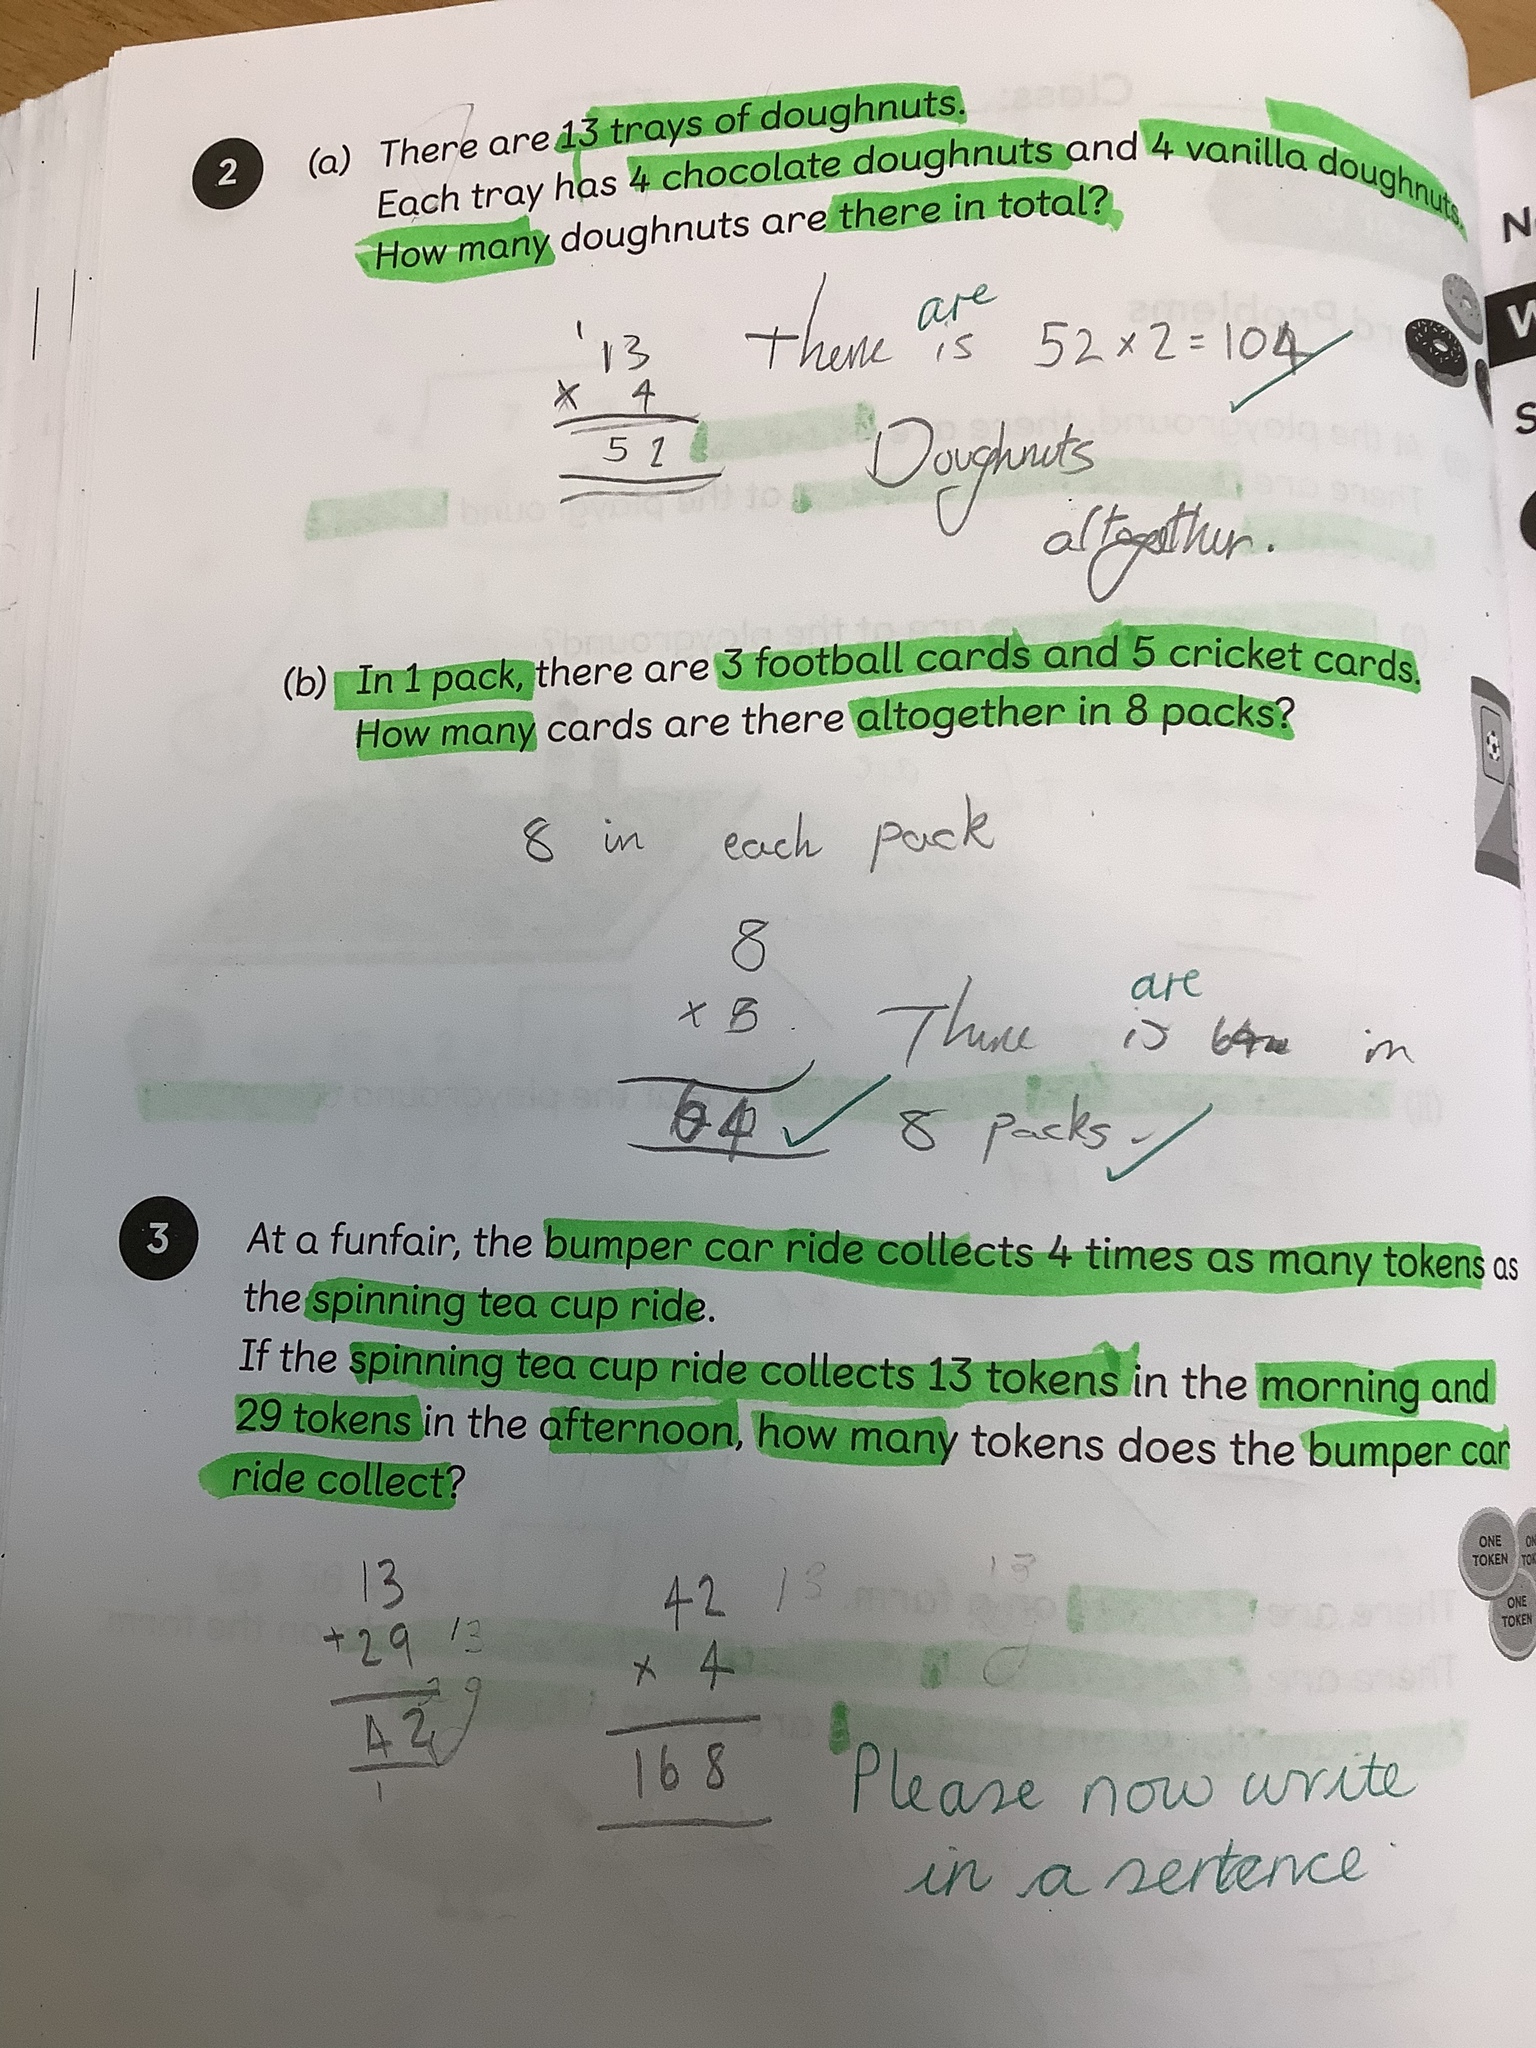 2 (a) There are 13 trays of doughnuts.
Each tray has 4 chocolate doughnuts and 4 vanilla doughnuts.
How many doughnuts are there in total?
are
1 13 There is 52 × 2 = 104
× 4
52 Doughnuts
altogether.
(b) In 1 pack, there are 3 football cards and 5 cricket cards.
How many cards are there altogether in 8 packs?
8 in each pack
8
are
× 8 There is 64 in
64 8 packs.
3 At a funfair, the bumper car ride collects 4 times as many tokens as
the spinning tea cup ride.
If the spinning tea cup ride collects 13 tokens in the morning and
29 tokens in the afternoon, how many tokens does the bumper car
ride collect?
ONE
TOKEN
ONE
TOKEN
13 42 13 13
+29 13 × 4
29
42 168
1
Please now write
in a sentence